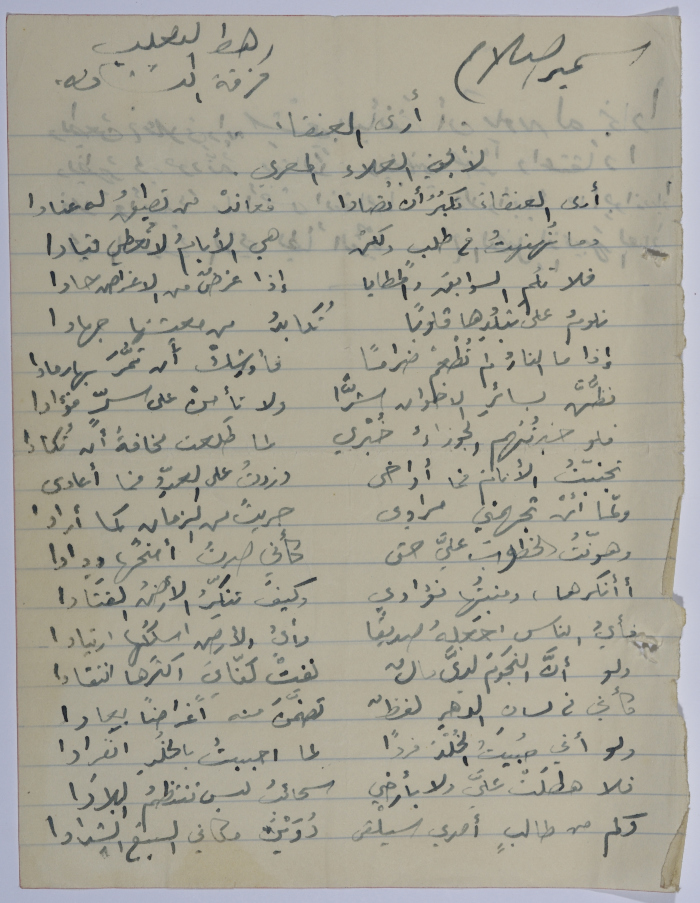 سمير السلام رهط الصليب
فرقة
أرى العنقاء
لأبي العلاء المعري
أرى العنقاء تكبرُ أن تُصادا فعاندْ من تطيقُ له عنادا
وما نَهنهتُ في طلب ولكن هي الأيامُ لا تُعطي قيادا
فلا تلُم السوابقَ والمطايا إذا غرضٌ من الاغراض حادا
تلومُ على تبلّدها قلوبًا تُكابدُ من معيشتها جهادا
إذا ما النارُ لم تُطْعمْ ضرامًا فأوشِكْ أن تمُرَّ بها رمادا
فظُنَّ بسائرِ الاخوان شرًّا ولا تأمنْ على سرٍّ فؤادا
فلو خبرتْهم الجوزاءُ خُبْري لما طلعت مخافةَ أن تُكادا
تجنّبتُ الأنامَ فما أُواخي وزدتُ على العدوّ فما أعادي
ولمّا أنْ تجهّمني مرادي جريتُ من الزمان كما أرادا
وهوّنتُ الخطوبَ عليَّ حتى كأني صرتُ أمنحُها ودادا
أأنكرها، ومنبتُها فؤادي وكيفَ تنكِّرُ الأرضُ القتادا
فأيُّ الناس اجعلهُ صديقًا وأيُّ الأرض اسلكُها ارتيادا
ولو أنَّ النجومَ لديَّ مالٌ نفتْ كفّايَ اكثرَها انتقادا
كأني في لسان الدهرِ لفظٌ تضمَّنَ منه أغراضًا بعادا
ولو أني حُبِيتُ الخُلْدَ فردًا لما احببتُ بالخلُدِ انفرادا
فلا هطلَتْ عليَّ ولا بأرضي سحائبُ ليس تنتظمُ البلادا
وكم من طالبٍ أمدي سيلقى دُوَيْنَ مكاني السبعَ الشدادا